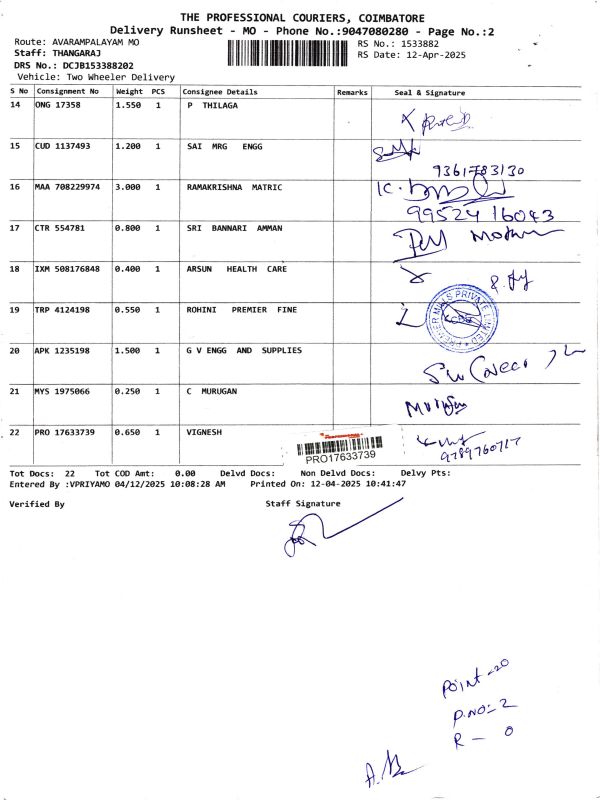 THE PROFESSIONAL COURIERS, COIMBATORE
Delivery Runsheet - MO - Phone No.:9047080280 - Page No.:2
Route: AVARAMPALAYAM MO
Staff: THANGARAJ
DRS No.: DCJB153388202
Vehicle: Two Wheeler Delivery
RS No.: 1533882
RS Date: 12-Apr-2025
S No Consignment No Weight PCS Consignee Details Remarks Seal & Signature
14 ONG 17358 1.550 1 P THILAGA
15 CUD 1137493 1.200 1 SAI MRG ENGG
9361783130
16 MAA 708229974 3.000 1 RAMAKRISHNA MATRIC
99524 16043
17 CTR 554781 0.800 1 SRI BANNARI AMMAN
18 IXM 508176848 0.400 1 ARSUN HEALTH CARE
19 TRP 4124198 0.550 1 ROHINI PREMIER FINE
PREMIER MILLS PRIVATE LIMITED
20 APK 1235198 1.500 1 G V ENGG AND SUPPLIES
21 MYS 1975066 0.250 1 C MURUGAN
22 PRO 17633739 0.650 1 VIGNESH
PRO17633739
9789760717
Tot Docs: 22 Tot COD Amt: 0.00 Delvd Docs: Non Delvd Docs: Delvy Pts:
Entered By :VPRIYAMO 04/12/2025 10:08:28 AM Printed On: 12-04-2025 10:41:47
Verified By Staff Signature
Point - 20
P.NO = 2
R - 0